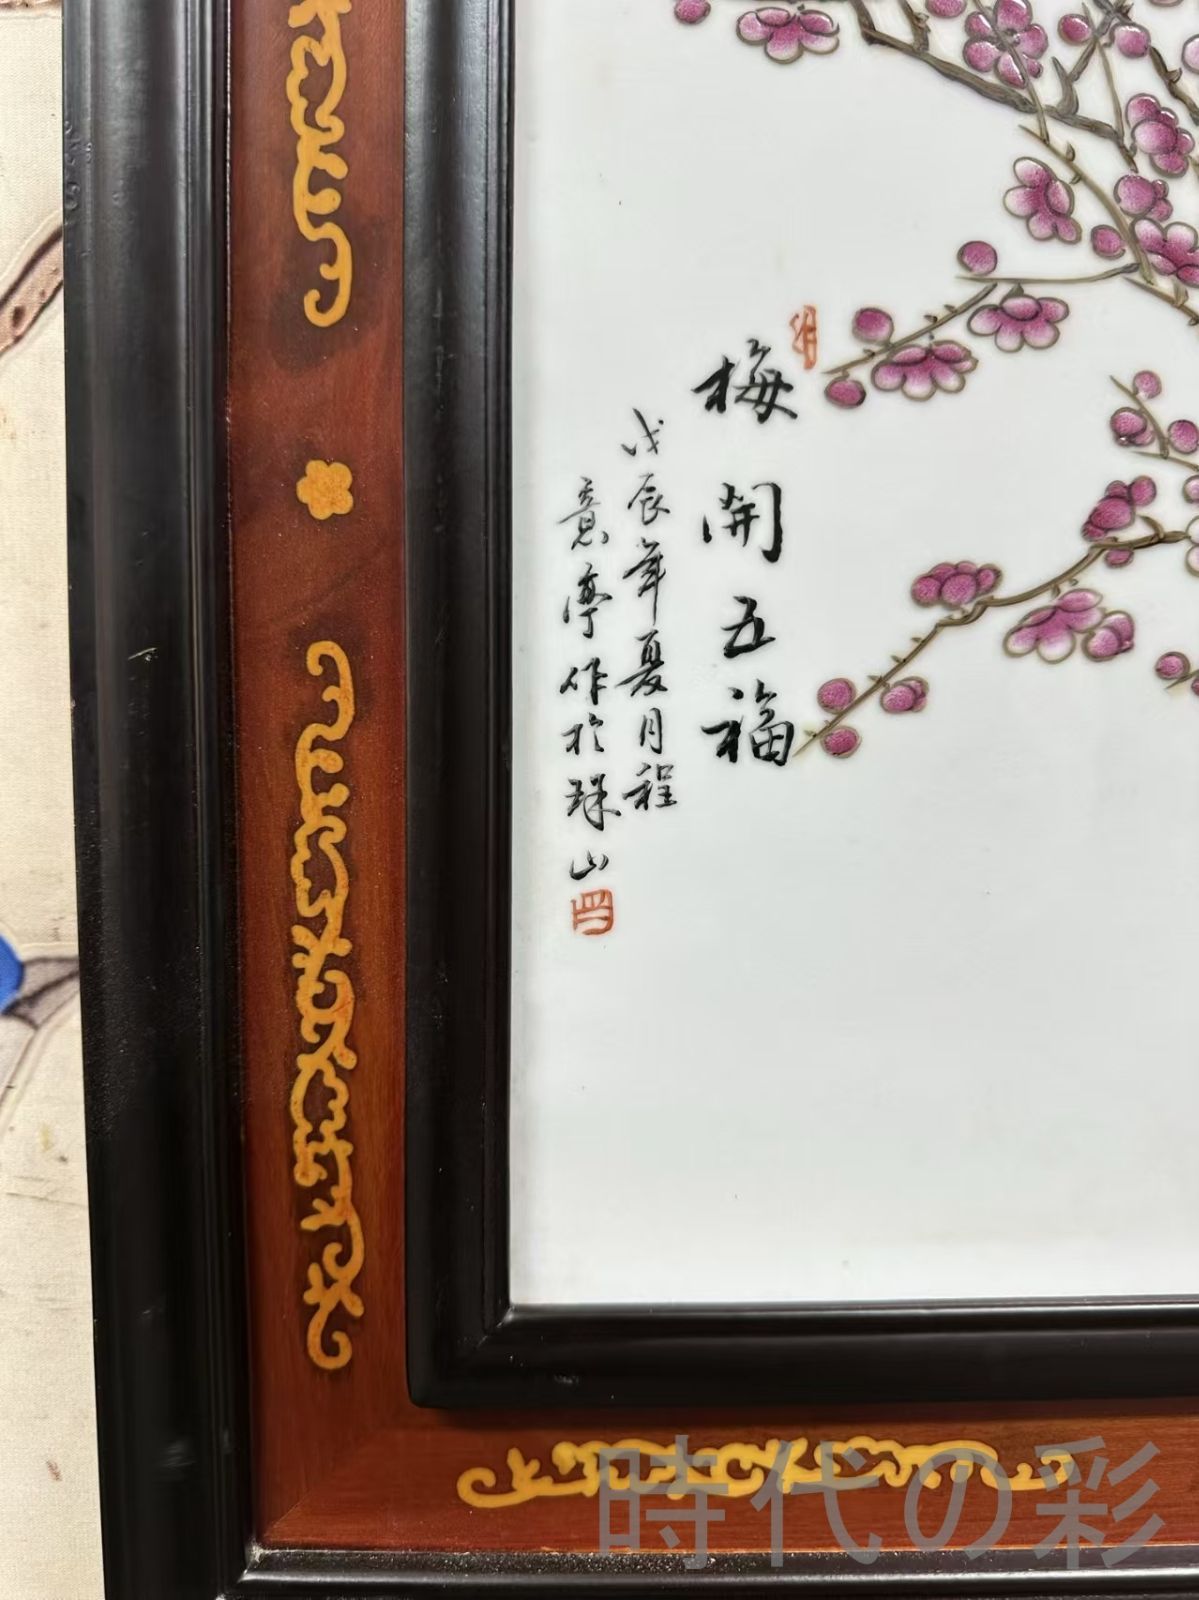 梅開五福
戊辰年夏月程
意亭作於珠山
時代の彩